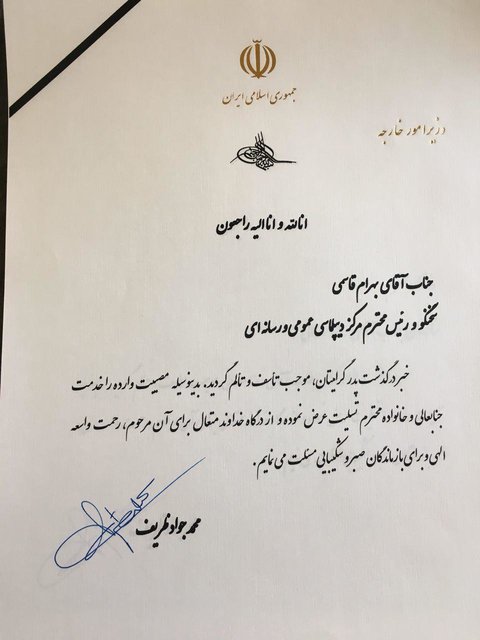 جمهوری اسلامی ایران
وزیر امور خارجه
انالله و انا الیه راجعون
جناب آقای بهرام قاسمی
سخنگو و رئیس محترم مرکز دیپلماسی عمومی و رسانه ای
خبر درگذشت پدر گرامیتان، موجب تأسف و تألم گردید. بدینوسیله مصیبت وارده را خدمت
جنابعالی و خانواده محترم تسلیت عرض نموده و از درگاه خداوند متعال برای آن مرحوم، رحمت واسعه
الهی و برای بازماندگان صبر و شکیبایی مسئلت می نمایم.
محمد جواد ظریف